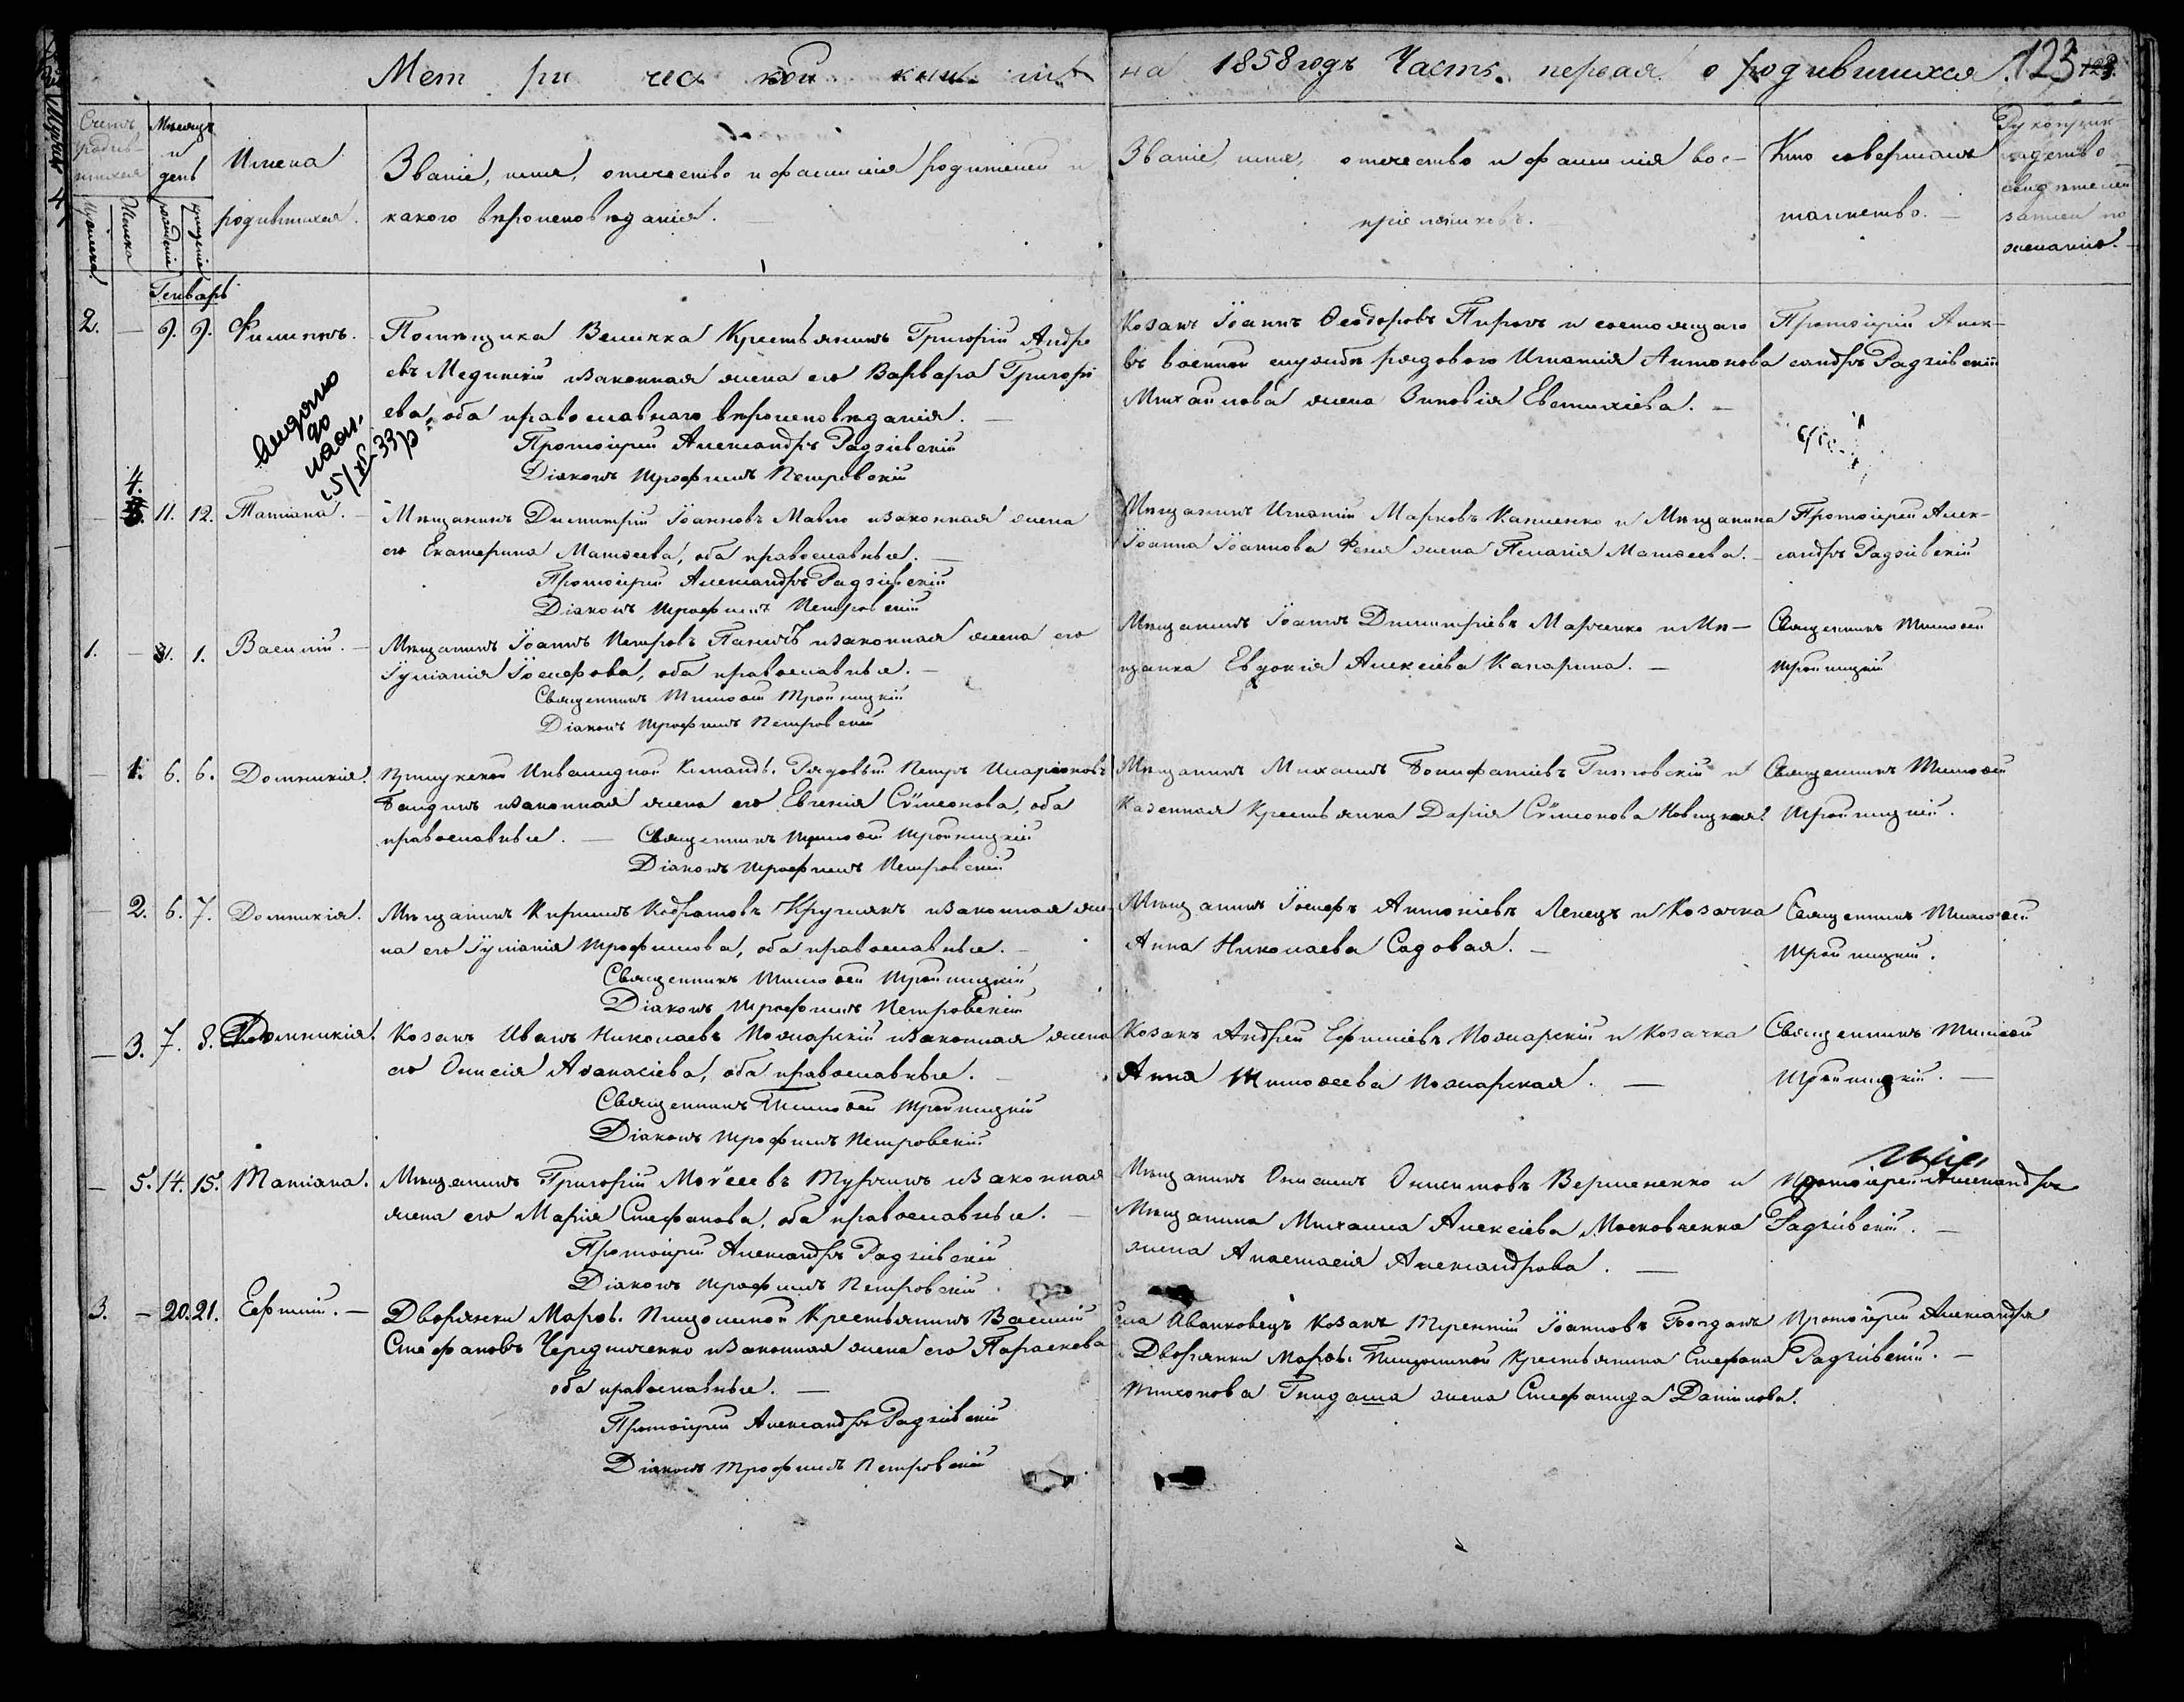 Метрической книги на 1858 годъ Часть первая о родившихся. 123
Счетъ родив-шихся
Мужеска.
Женска
Мѣсяцъ и день
рожденiя
крещенiя
Имена
родившихся.
Званiе, имя, отечество и фамилiя родителей и
какого вѣроисповѣданiя.
Званiе, имя, отечество и фамилiя вос-
прiемниковъ.
Кто совершалъ
таинство.
Рукоприк-
ладство
свидѣтелей
записи по
желанiю.
Генварь
2. — 9. 9. Филиппъ.
Помѣщика Величка Крестьянинъ Григорiй Андре
евъ Мединскiй изаконная жена его Варвара Григорi
ева, оба православнаго вѣроисповѣданiя. —
Протоiерей Александръ Радзiевскiй
Дiаконъ Трофимъ Петровскiй
Козакъ Iоаннъ Ѳеодоровъ Пирогъ и состоящаго
въ военной службѣ рядового Игнатiя Антонова
Михайлова жена Зиновiя Евтихiева. —
Протоiерей Алек-
сандръ Радзiевскiй
видано
до
15/XI-33р
— 4. 11. 12. Татiана. —
Мѣщанинъ Димитрiй Iоанновъ Мавло изаконная жена
его Екатерина Матѳеева, оба православные. —
Протоiерей Александръ Радзiевскiй
Дiаконъ Трофимъ Петровскiй
Мѣщанинъ Игнатiй Марковъ Капленко и Мѣщанина
Iоанна Iоаннова Феня жена Пелагiя Матѳеева. —
Протоiерей Алек-
сандръ Радзiевскiй
1. — 1. Василiй. —
Мѣщанинъ Iоаннъ Петровъ Паничъ изаконная жена его
Iулiанiя Iосифова, оба православные. —
Священникъ Тимоѳей Тройницкiй
Дiаконъ Трофимъ Петровскiй
Мѣщанинъ Iоаннъ Димитрiевъ Марченко и Мѣ-
щанка Евдокiя Алексiева Капарина. —
Священникъ Тимоѳей
Тройницкiй
— 1. 6. 6. Домникiя.
Прилукской Инвалидной Команды. Рядовый Петръ Иларiоновъ
Бандинъ изаконная жена его Евгенiя Сѵмеонова, оба
православные. — Священникъ Тимоѳей Тройницкiй
Дiаконъ Трофимъ Петровскiй
Мѣщанинъ Михаилъ Бонифатiевъ Гизловскiй и
Казенная Крестьянка Дарiя Сѵмеонова Новицкая.
Священникъ Тимоѳей
Тройницкiй.
— 2. 6. 7. Домникiя.
Мѣщанинъ Кирилъ Кодратовъ Круглякъ изаконная же-
на его Iулiанiя Трофимова, оба православные. —
Священникъ Тимоѳей Тройницкiй
Дiаконъ Трофимъ Петровскiй
Мѣщанинъ Iосифъ Антонiевъ Ленецъ и Козачка
Анна Николаева Садовая. —
Священникъ Тимоѳей
Тройницкiй.
— 3. 7. 8. Домникiя.
Козакъ Иванъ Николаевъ Пожарскiй изаконная жена
его Онисiя Аѳанасiева, оба православные. —
Священникъ Тимоѳей Тройницкiй
Дiаконъ Трофимъ Петровскiй
Козакъ Андрей Ефимiевъ Пожарскiй и Козачка
Анна Тимоѳеева Пожарская. —
Священникъ Тимоѳей
Тройницкiй. —
— 5. 14. 15. Татiана.
Мѣщанинъ Григорiй Моѵсеевъ Турчинъ изаконная
жена его Марiя Стефанова, оба православные. —
Протоiерей Александръ Радзiевскiй
Дiаконъ Трофимъ Петровскiй
Мѣщанинъ Онисимъ Онисимовъ Вермененко и
Мѣщанина Михаила Алексiева Московченка
жена Анастасiя Александрова. —
Протоiерей Александръ
Радзiевскiй. —
3. — 20. 21. Ефимiй. —
Дворянки Марѳы Пищолиной Крестьянинъ Василiй
Стефановъ Чередниченко изаконная жена его Параскева
оба православные. —
Протоiерей Александръ Радзiевскiй
Дiаконъ Трофимъ Петровскiй
села Иванковецъ Козакъ Терентiй Iоанновъ Богданъ
Дворянки Марѳы Пищолиной Крестьянина Стефана
Тихонова Гнидаша жена Стефанида Данiилова.
Протоiерей Александръ
Радзiевскiй. —